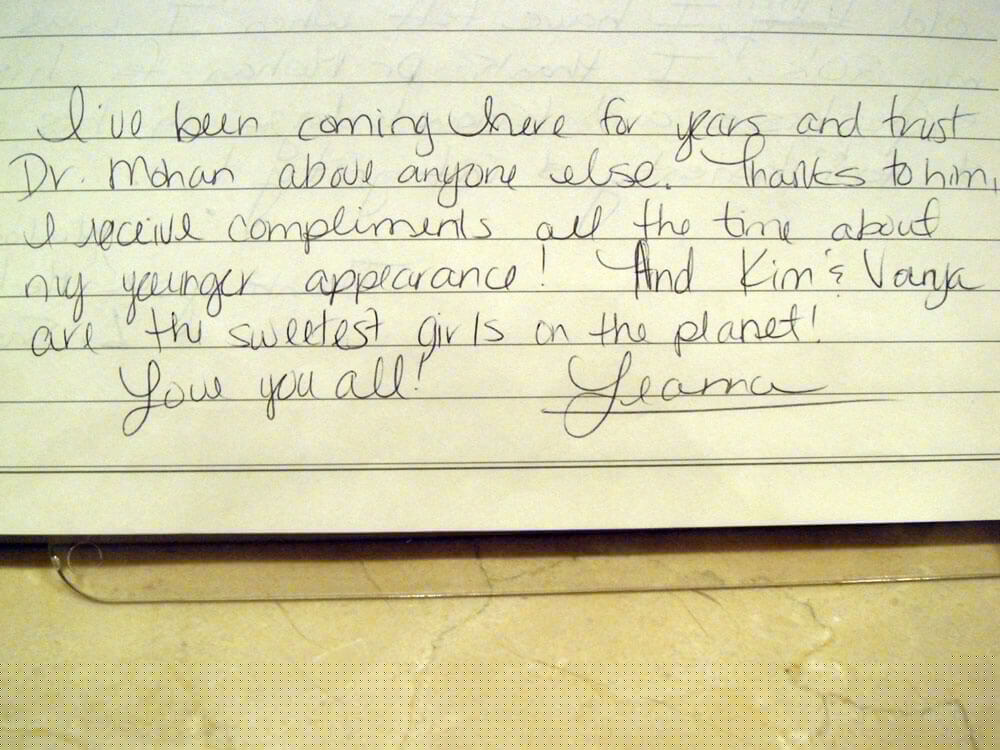 I've been coming here for years and trust
Dr. Mohan above anyone else. Thanks to him,
I receive compliments all the time about
my younger appearance! And Kim & Vanja
are the sweetest girls on the planet!
Love you all! Leanna